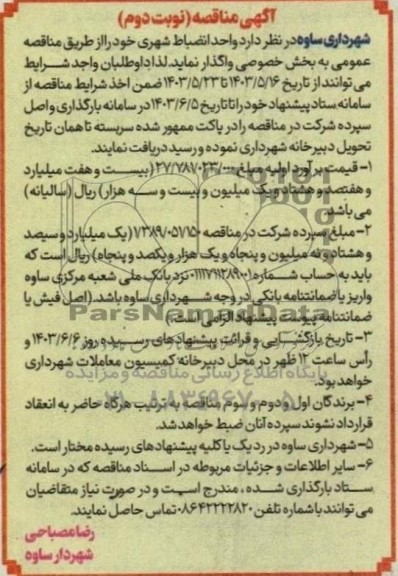 آگهی مناقصه (نوبت دوم)
شهرداری ساوه در نظر دارد واحد انضباط شهری خود را از طریق مناقصه
عمومی به بخش خصوصی واگذار نماید. لذا داوطلبان واجد شرایط
می توانند از تاریخ ۱۴۰۳/۵/۱۶ تا ۱۴۰۳/۵/۲۳ ضمن اخذ شرایط مناقصه از
سامانه ستاد پیشنهاد خود را تا تاریخ ۱۴۰۳/۶/۵ در سامانه بارگذاری و اصل
سپرده شرکت در مناقصه را در پاکت ممهور شده سربسته تا همان تاریخ
تحویل دبیرخانه شهرداری نموده و رسید دریافت نمایند.
۱- قیمت برآورد اولیه مبلغ ۲۷/۷۸۷/۰۲۳/۰۰۰ (بیست و هفت میلیارد
و هفتصد و هشتاد و یک میلیون و بیست و سه هزار) ریال (سالیانه)
می باشد.
۲- مبلغ سپرده شرکت در مناقصه (یک میلیارد و سیصد
و هشتاد و نه میلیون و پنجاه و یک هزار و یکصد و پنجاه) ریال است که
باید به حساب شماره نزد بانک ملی شعبه مرکزی ساوه
واریز یا ضمانتنامه بانکی در وجه شهرداری ساوه باشد. (اصل فیش یا
ضمانتنامه پیوست پیشنهاد الزامی است.)
۳- تاریخ بازگشایی و قرائت پیشنهادهای رسیده روز ۱۴۰۳/۶/۶ و
رأس ساعت ۱۲ ظهر در محل دبیرخانه کمیسیون معاملات شهرداری
خواهد بود.
۴- برندگان اول و دوم و سوم مناقصه به ترتیب هرگاه حاضر به انعقاد
قرارداد نشوند سپرده آنان ضبط خواهد شد.
۵- شهرداری ساوه در رد یک یا کلیه پیشنهادهای رسیده مختار است.
۶- سایر اطلاعات و جزئیات مربوطه در اسناد مناقصه که در سامانه
ستاد بارگذاری شده، مندرج است و در صورت نیاز متقاضیان
می توانند با شماره تلفن ۰۸۶۴۲۲۲۲۸۲۰ تماس حاصل نمایند.
رضا مصباحی
شهردار ساوه
ParsNamadData
پایگاه اطلاع رسانی مناقصه و مزایده
۰۲۱-۸۸۳۴۹۶۷۰-۵